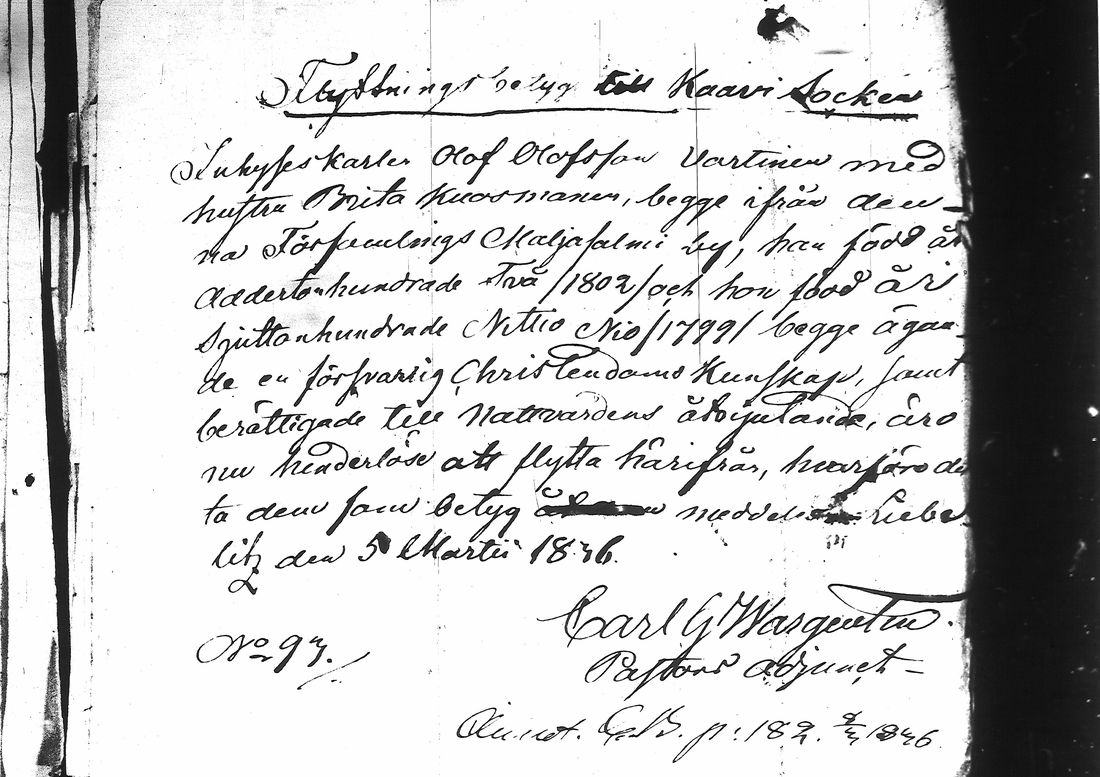 Flyttningsbetyg till Kaavi Socken
Inhyseskarlen Olof Olofsson Vartinen med
hustru Brita Kuosmanen, begge ifrån den-
na Församlings Maljasalmi by, han född år
Adertonhundrade Två /1802/ och hon född år
Sjuttonhundrade Nittio Nio /1799/ begge ägan-
de en försvarlig Christendoms Kunskap, samt
berättigade till Nattvardens åtnjutande, äro
nu hinderlöse att flytta härifrån, hvarföre det
ta dem som betyg meddelas. Liebe
litz den 5 Martii 1836.
Carl G Wargentin.
No 93.
Pastors adjunct
Annot. C.B. p: 182. 1836